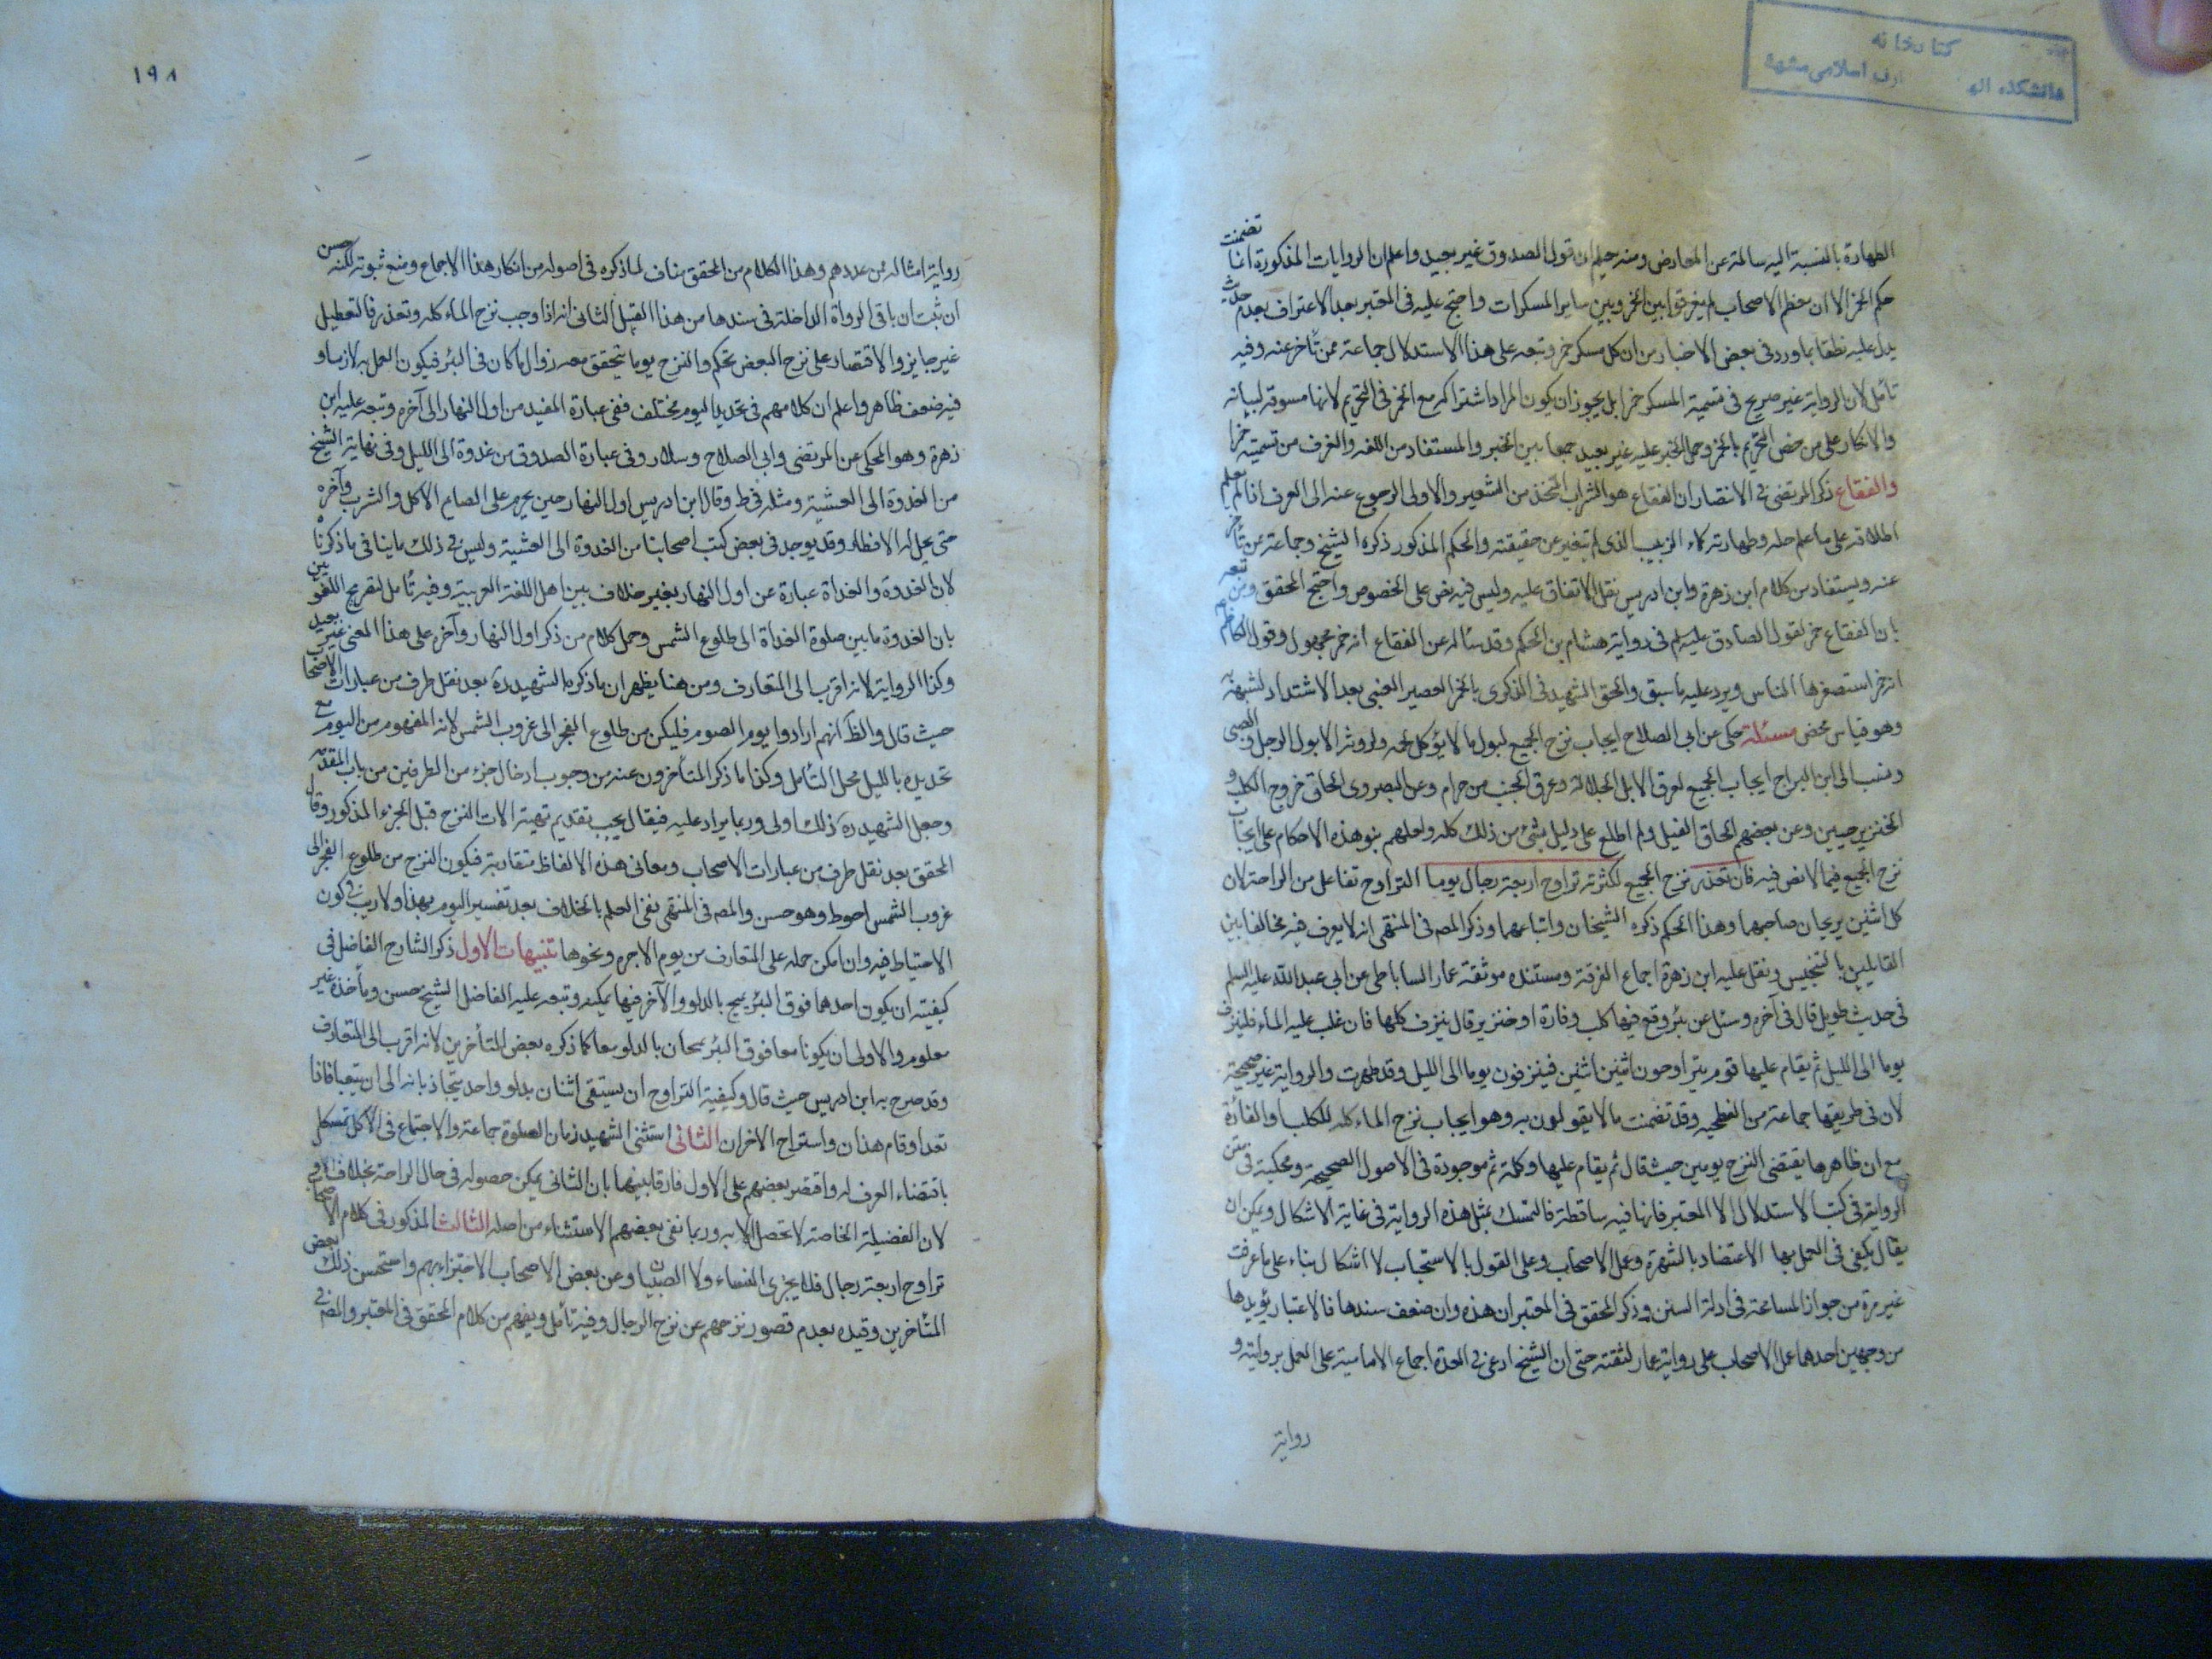 كتابخانه
دانشكده اله ارف اسلامى مشهد
الطهارة بالنسبة اليه سالمة عن المعارض ومنه حيلم ان قول الصدوق غير بعيد واعلم ان الروايات المذكورة انما تضمنت
حكم الخمر الا ان معظم الاصحاب لم يفرقوا بين الخمر وبين ساير المسكرات واحتج عليه فى المعتبر بعد الاعتراف بعدم حديث
يدل عليه نطقا بما ورد فى بعض الاخبار من ان كل مسكر خمر وتبعه على هذا الاستدلال جماعة ممن تأخر عنه وفيه
تأمل لان الرواية غير صريح فى تسمية المسكر خمرا بل يجوز ان يكون المراد اشتراكه مع الخمر فى التحريم لانها مسوقة لبيانه
والانكار على من خص التحريم بالخمر وحمل الخبر عليه غير بعيد جمعا بين الخبر والمستفاد من اللغة والعرف من تسميته خمرا
والفقاع ذكر المرتضى فى الانتصار ان الفقاع هو الشراب المتخذ من الشعير والاولى الرجوع عنه الى العرف انا لم يعلم
اطلاقه على ما علم حله وطهارته كماء الزبيب الذى لم يتغير عن حقيقته والحكم المذكور ذكره الشيخ وجماعة من تأخر
عنه ويستفاد من كلام ابن زهرة وابن ادريس نقل الاتفاق عليه وليس فيه نص على الخصوص واحتج المحقق ومن تبعه
بان الفقاع خمر لقول الصادق عليه السلم فى رواية هشام بن الحكم وقد سأله عن الفقاع انه خمر مجهول وقول الكاظم
انه خمر استصغرها الناس ويرد عليه ما سبق والحق الشهيد فى الذكرى بالخمر العصير العنبى بعد الاشتداد لشبهه به
وهو قياس محض مسئلة حكى عن ابى الصلاح ايجاب نزح الجميع لبول ما لا يؤكل لحمه ولروثه الا بول الرجل والصبى
ونسب الى ابن البراج ايجاب الجميع لعرق الابل الجلالة وعرق الجنب من حرام وعن البصروى الحاق خروج الكلب و
الخنزير حيين وعن بعضهم الحاق الفيل ولم اطلع على دليل بشئ من ذلك كله ولعلهم بنو هذه الاحكام على ايجاب
نزح الجميع فيما لا نص فيه فان تعذر نزح الجميع لكثرته تراوح اربعة رجال يوما التراوح تفاعل من الراحة لان
كل اثنين يريحان صاحبهما وهذا الحكم ذكره الشيخان واتباعهما وذكر المصـ فى المنتهى انه لا يعرف فيه مخالفا بين
القايلين بالتنجيس ونقل عليه ابن زهرة اجماع الفرقة ومستنده موثقة عمار الساباطى عن ابى عبد الله عليه السلم
فى حديث طويل قال فى آخره وسئل عن بئر وقع فيها كلب وفارة او خنزير قال ينزف كلها فان غلب عليه الماء فلينزف
يوما الى الليل ثم يقام عليها قوم يتراوحون اثنين اثنين فينزفون يوما الى الليل وقد طهرت والرواية غير صحيحة
لان فى طريقها جماعة من الفطحيه وقد تضمنت ما لا يقولون به وهو ايجاب نزح الماء كله للكلب والفأرة
مع ان ظاهرها يقتضى النزح يومين حيث قال ثم يقام عليها وكلمة ثم موجودة فى الاصول الصحيحة ومحكية فى متن
الرواية فى كتب الاستدلال الا المعتبر فانها فيه ساقطة فالتمسك بمثل هذه الرواية فى غاية الاشكال ويمكن ان
يقال يكفى فى العمل بها الاعتضاد بالشهرة وعمل الاصحاب وعلى القول بالاستحباب لا اشكال بناء على ما عرفت
غير مرة من جواز المسامحة فى ادلة السنن وذكر المحقق فى المعتبر ان هذه وان ضعف سندها فالاعتبار يؤيدها
من وجهين احدهما عمل الاصحاب على رواية عمار لثقته حتى ان الشيخ ادعى فى العدة اجماع الامامية على العمل بروايته و
رواية
١٩٨
رواية امثاله ممن عددهم وهذا الكلام من المحقق مناف لما ذكره فى اصوله من انكار هذا الاجماع ومنع ثبوته لكنه حسن
ان ثبت ان باقى الرواة الداخلة فى سندها من هذا القبيل الثانى انه اذا وجب نزح الماء كله وتعذر فالتعطيل
غير جايز والاقتصار على نزح البعض تحكم والنزح يوما يتحقق معه زوال ما كان فى البئر فيكون العمل به لازما و
فيه ضعف ظاهر واعلم ان كلامهم فى تحديد اليوم مختلف ففى عبارة المفيد من اول النهار الى آخره وتبعه عليه ابن
زهرة وهو المحكى عن المرتضى وابى الصلاح وسلار وفى عبارة الصدوق من غدوة الى الليل وفى نهاية الشيخ
من الغدوة الى العشية ومثله فى ط وقال ابن ادريس اول النهار حين يحرم على الصائم الاكل والشرب وآخره
حتى يحل له الافطار وقد يوجد فى بعض كتب اصحابنا من الغدوة الى العشية وليس فى ذلك ما ينافى ما ذكرناه
لان الغدوة والغداة عبارة عن اول النهار بغير خلاف بين اهل اللغة العربية وفيه تأمل لتصريح اللغويين
بان الغدوة ما بين صلوة الغداة الى طلوع الشمس وحمل كلام من ذكر اول النهار وآخره على هذا المعنى غير بعيد
وكذا الرواية لانه اقرب الى المتعارف ومن هنا يظهر ان ما ذكره الشهيد ره بعد نقل طرف من عبارات الاصحاب
حيث قال والظ انهم ارادوا يوم الصوم فليكن من طلوع الفجر الى غروب الشمس لانه المفهوم من اليوم مع
تحديده بالليل محل التأمل وكذا ما ذكر المتأخرون عنه من وجوب ادخال جزء من الطرفين من باب المقدمة
وجعل الشهيد ره ذلك اولى وربما يراد عليه فيقال يجب تقديم تهيئة الات النزح قبل الجزء المذكور وقال
المحقق بعد نقل طرف من عبارات الاصحاب ومعانى هذه الالفاظ متقاربة فيكون النزح من طلوع الفجر الى
غروب الشمس احوط وهو حسن والمصـ فى المنتهى نفى العلم بالخلاف بعد تفسير اليوم بهذا ولا ريب فى كون
الاحتياط فيه وان امكن حمله على المتعارف من يوم الاجير ونحوها تنبيهات الاول ذكر الشارح الفاضل فى
كيفيته ان يكون احدهما فوق البئر يميح بالدلو والآخر فيها يمليه وتبعه عليه الفاضل الشيخ حسن ومأخذه غير
معلوم والاولى ان يكونا معا فوق البئر يمتحان بالدلو معا كما ذكره بعض المتأخرين لانه اقرب الى المتعارف
وقد صرح به ابن ادريس حيث قال وكيفية التراوح ان يستقى اثنان بدلو واحد يتجاذبانه الى ان يتعبا فاذا
تعبا وقام هذان واستراح الاخران الثانى استثنى الشهيد زمان الصلوة جماعة والاجتماع فى الاكل تمسكا
باقتضاء العرف له واقتصر بعضهم على الاول فارقا بينهما بان الثانى يمكن حصوله فى حال الراحة بخلاف الاول
لان الفضيلة الخاصة لا تحصل الا به وربما نفى بعضهم الاستثناء من اصله الثالث المذكور فى كلام الاصحاب
تراوح اربعة رجال فلا يجزى النساء ولا الصبيان وعن بعض الاصحاب الاجتزاء بهم واستحسن ذلك بعض
المتأخرين وقيده بعدم قصور نزحهم عن نزح الرجال وفيه تأمل ويفهم من كلام المحقق فى المعتبر والمصـ فى